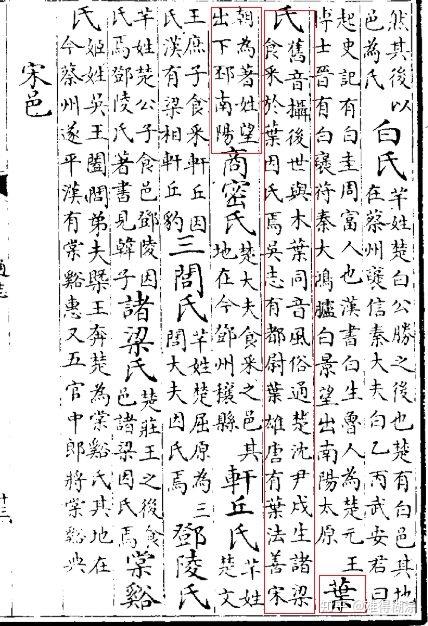 然其後以
邑為氏
白氏
羋姓楚白公勝之後也楚有白邑其地
在蔡州褒信秦大夫白乙丙武安君白
起史記有白圭周富人也漢書白生魯人為楚元王
博士晉有白褒苻秦大鴻臚白景望出南陽太原
葉
氏
舊音攝後世與木葉同音風俗通楚沈尹戌生諸梁
食采於葉因氏焉吳志有都尉葉雄唐有葉法善宋
朝為著姓望
出下邳南陽
商密氏
楚大夫食采之邑其
地在今鄧州穰縣
軒丘氏
羋姓
楚文
王庶子食采軒丘因
氏漢有梁相軒丘豹
三閭氏
羋姓楚屈原為三
閭大夫因氏焉
鄧陵氏
羋姓楚公子食邑鄧陵因
氏焉鄧陵氏著書見韓子
諸梁氏
楚莊王之後食
邑諸梁因氏焉
棠谿
氏
姬姓吳王闔閭弟夫㮣王奔楚為棠谿氏其地在
今蔡州遂平漢有棠谿惠又五官中郎將棠谿典
宋邑